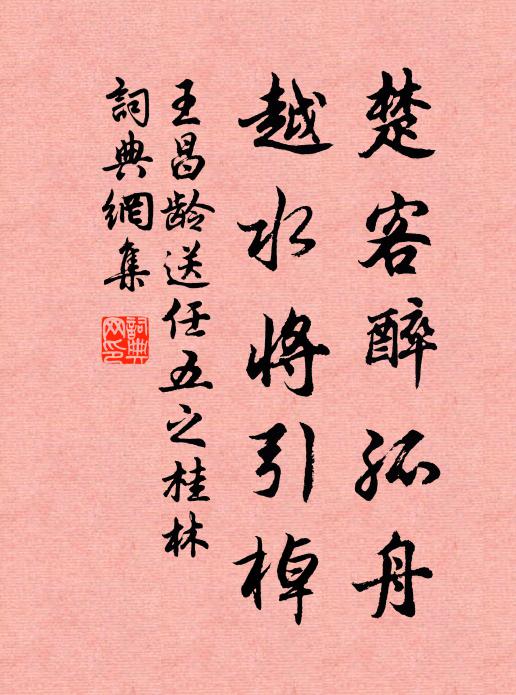 楚客醉孤舟
越水将引棹
王昌龄送任五之桂林
詞典網集
詞典網印